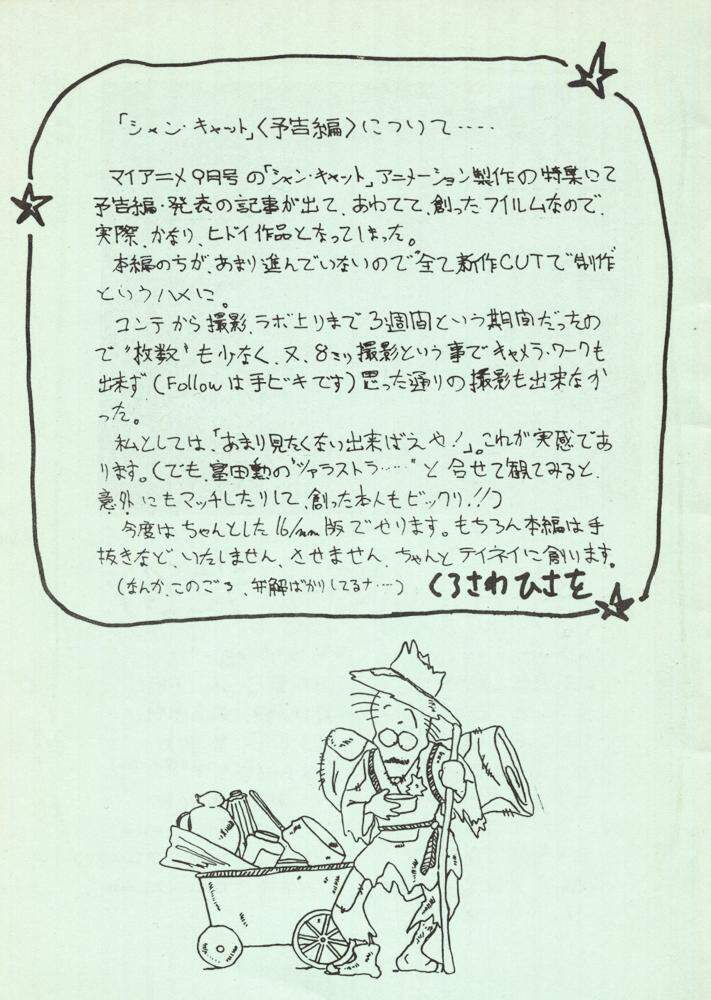 「シャン・キャット」〈予告編〉について……
マイアニメ9月号の「シャン・キャット」アニメーション製作の特集にて
予告編・発表の記事が出て、あわてて、創ったフイルムなので、
実際、かなり、ヒドイ作品となってしまった。
本編のちが、あまり進んでいないので“全て新作CUTで”制作
というハメに。
コンテから撮影、ラボ上りまで3週間という期間だったの
で“枚数”も少なく、又、8ミリ撮影という事でキャメラ・ワークも
出来ず(Followは手ビキです)思った通りの撮影も出来なか
った。
私としては、「あまり見たくない出来ばえや!」。これが実感であ
ります。(でも、冨田勲の“ツァラストラ……”と合せて観てみると、
意外にもマッチしたりして、創った本人もビックリ!!)
今度はちゃんとした16㎜版でやります。もちろん本編は手
抜きなど、いたしません、させません、ちゃんとテイネイに創ります。
(なんか、このごろ、弁解ばかりしてるナ…)くろさわひさを